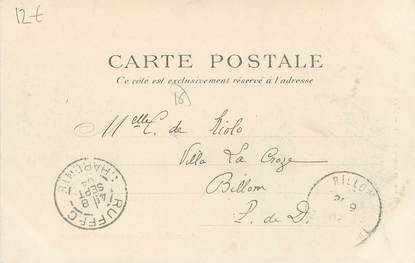 12€
CARTE POSTALE
Ce côté est exclusivement réservé à l'adresse
Melle C. de Riolo
Villa La Croze
Billom
P. de D.
RUFFEC
CHARENTE
8
SEPT
04
BILLOM